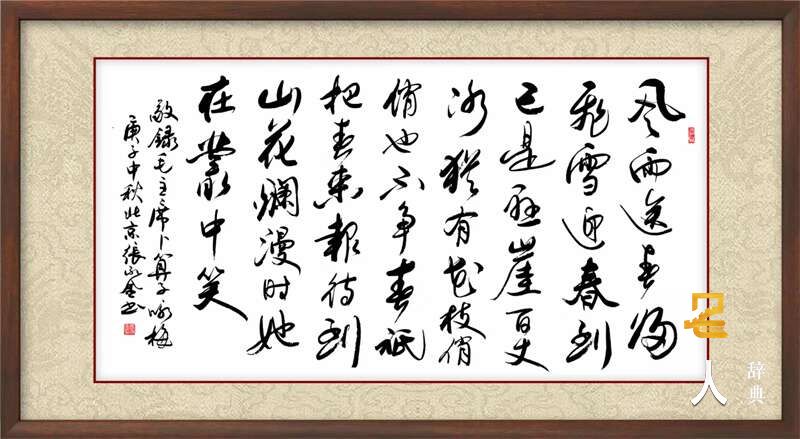 风雨送春归
飞雪迎春到
已是悬崖百丈
冰犹有花枝俏
俏也不争春祇
把春来报待到
山花爛漫时她
在丛中笑
敬録毛主席卜算子咏梅
庚子中秋北京张
名人
辞典